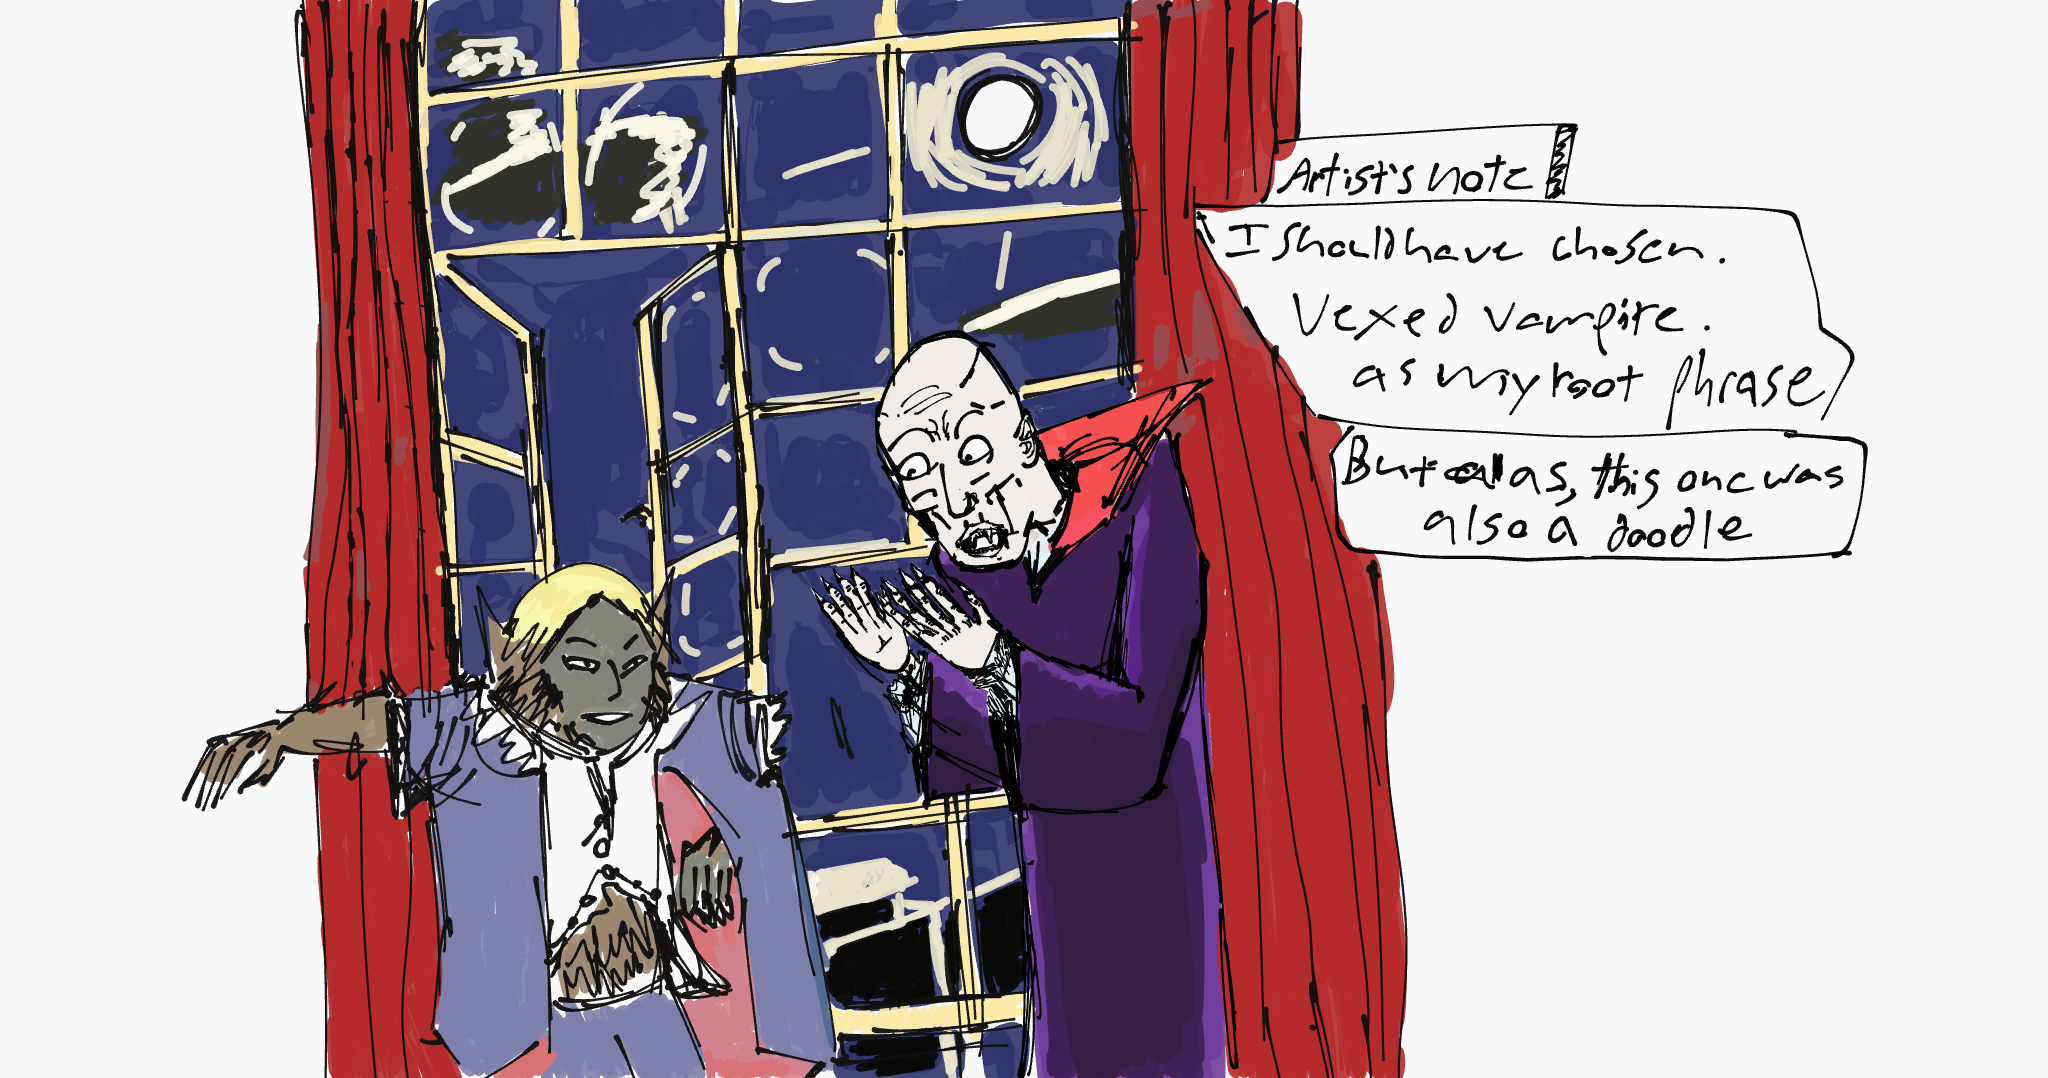 Artist's note
I should have chosen.
Vexed vampire.
as my root phrase
But alas, this one was
also a doodle